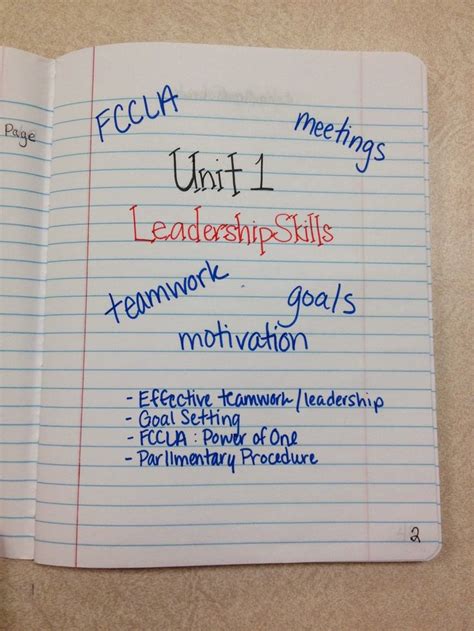 Page
FCCLA
meetings
Unit 1
Leadership Skills
teamwork
goals
motivation
- Effective teamwork/leadership
- Goal Setting
- FCCLA : Power of One
- Parlimentary Procedure
2